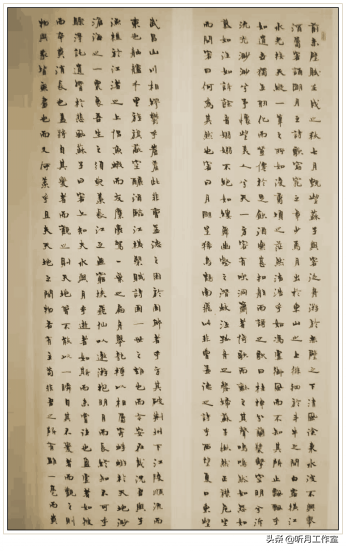 前赤壁賦壬戌之秋七月既望蘇子與客泛舟游於赤壁之下清風徐來水波不興舉
酒屬客誦明月之詩歌窈窕之章少焉月出於東山之上徘徊於斗牛之間白露橫江
水光接天縱一葦之所如凌萬頃之茫然浩浩乎如馮虛御風而不知其所止飄飄乎
如遺世獨立羽化而登僊於是飲酒樂甚扣舷而歌之歌曰桂棹兮蘭槳擊空明兮泝
流光渺渺兮予懷望美人兮天一方客有吹洞簫者倚歌而和之其聲嗚嗚然如怨如
慕如泣如訴餘音嫋嫋不絕如縷舞幽壑之潛蛟泣孤舟之嫠婦蘇子愀然正襟危坐
而問客曰何為其然也客曰月明星稀烏鵲南飛此非曹孟德之詩乎西望夏口東望
武昌山川相繆鬱乎蒼蒼此非孟德之困於周郎者乎方其破荊州下江陵順流而
東也舳艫千里旌旗蔽空釃酒臨江橫槊賦詩固一世之雄也而今安在哉況吾與子
漁樵於江渚之上侶魚蝦而友麋鹿駕一葉之扁舟舉匏樽以相屬寄蜉蝣於天地渺
滄海之一粟哀吾生之須臾羨長江之無窮挾飛仙以遨游抱明月而長終知不可乎
驟得託遺響於悲風蘇子曰客亦知夫水與月乎逝者如斯而未嘗往也盈虛者如彼
而卒莫消長也蓋將自其變者而觀之則天地曾不能以一瞬自其不變者而觀之則
物與我皆無盡也而又何羨乎且夫天地之間物各有主苟非吾之所有雖一毫而莫
头条 @听月工作室